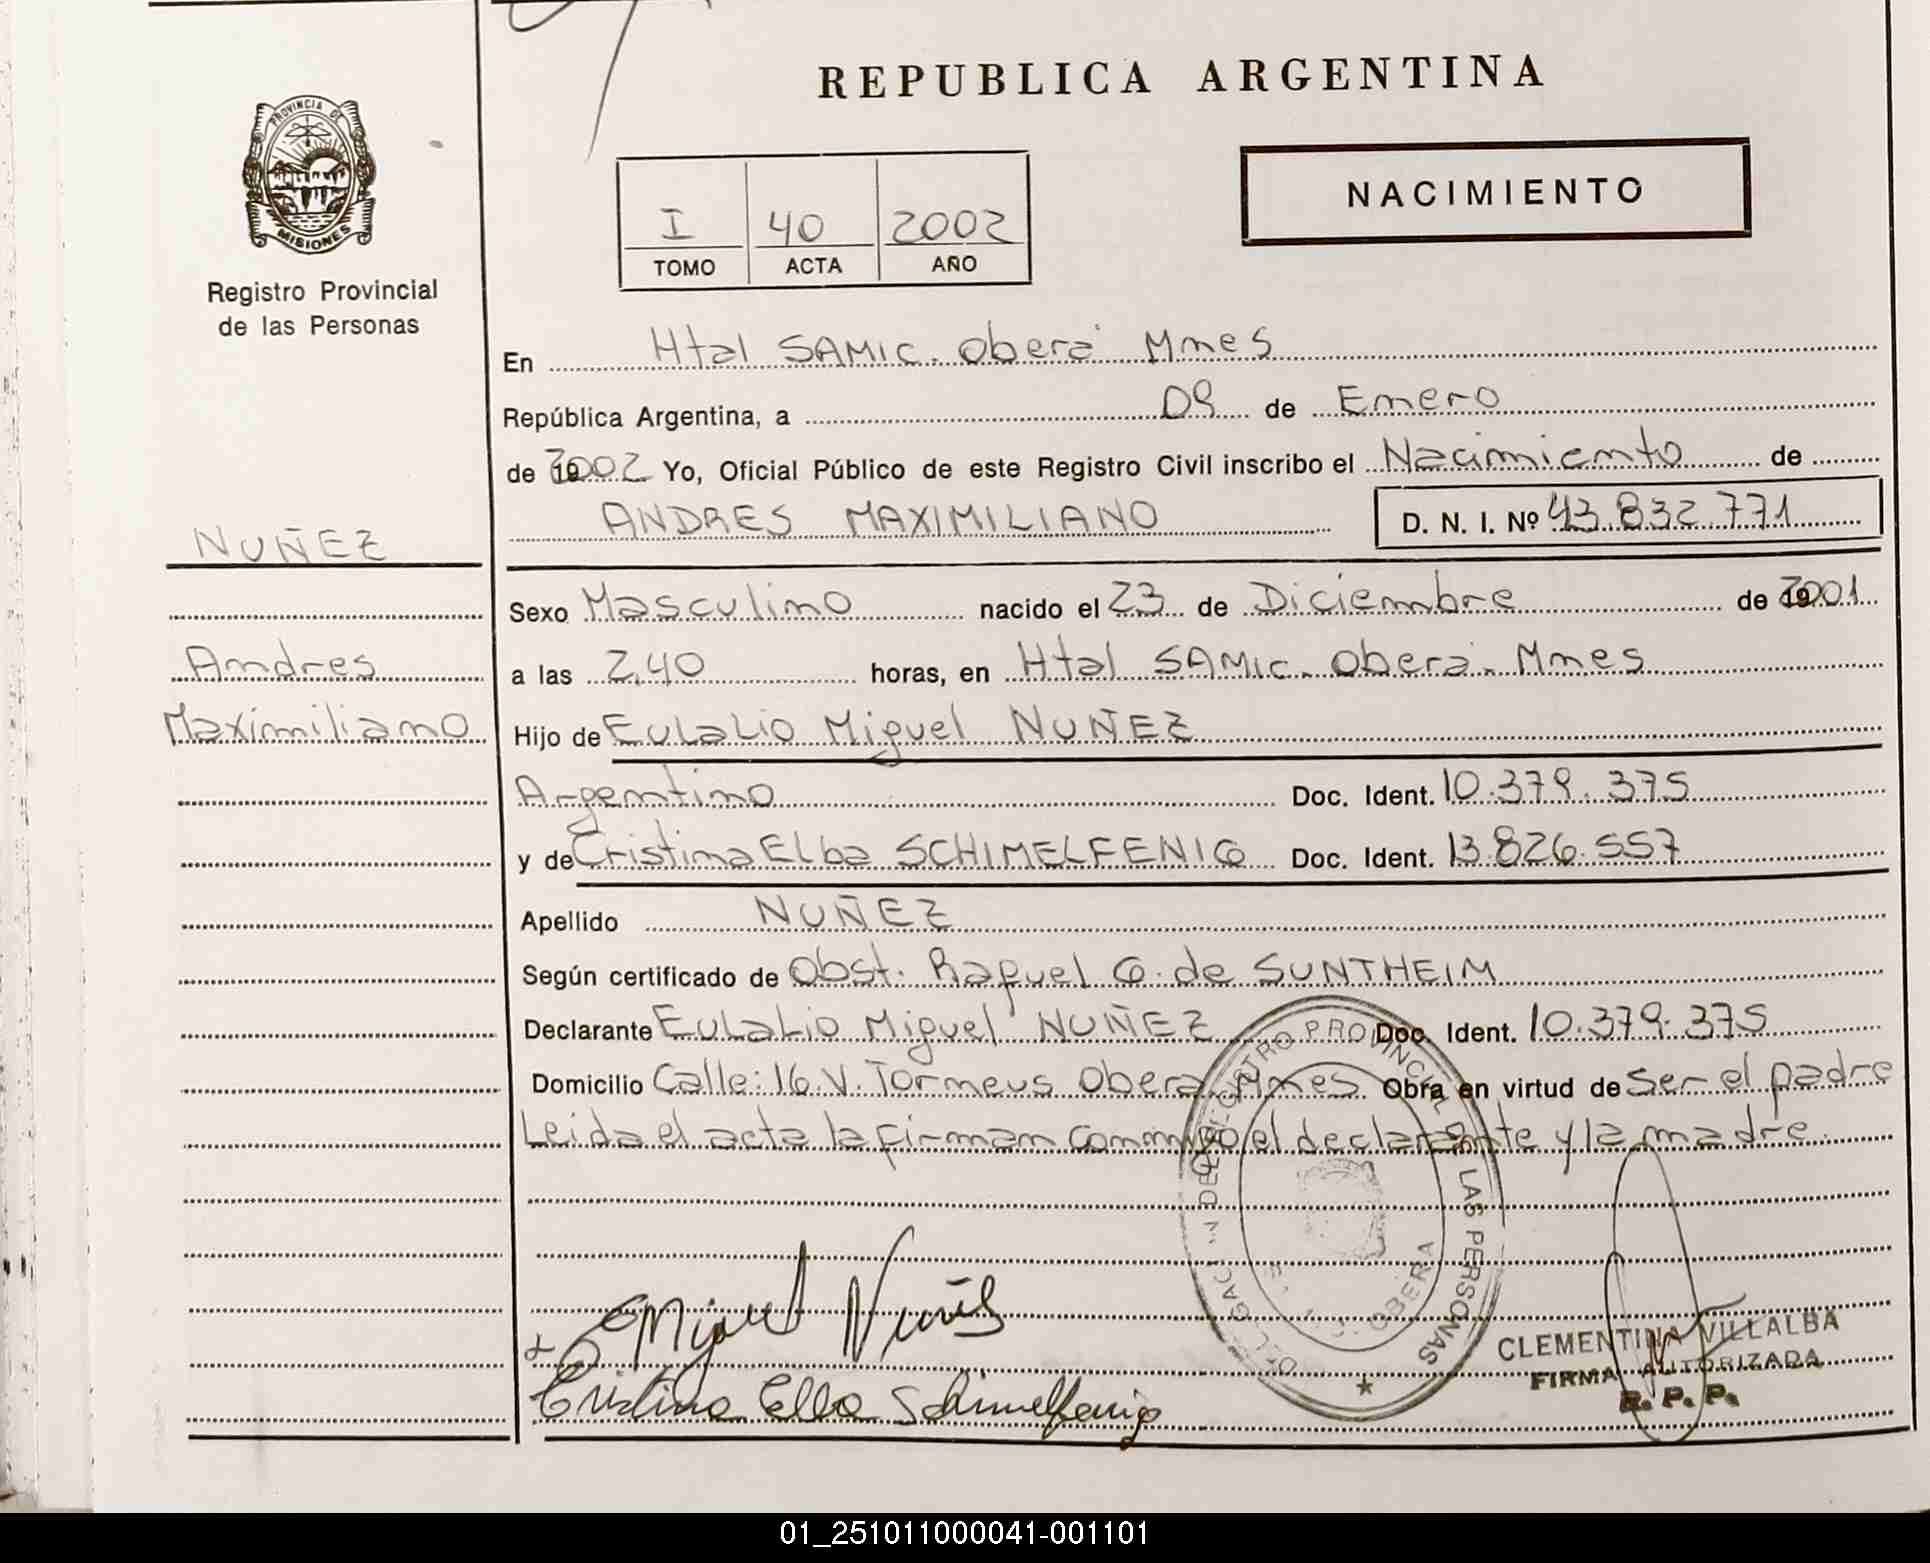 REPUBLICA ARGENTINA
PROVINCIA DE
MISIONES
Registro Provincial
de las Personas
I 40 2002
TOMO ACTA AÑO
NACIMIENTO
En Htal SAMIC. Oberá Mnes
República Argentina, a 09 de Enero
de 2002 Yo, Oficial Público de este Registro Civil inscribo el Nacimiento de
ANDRES MAXIMILIANO D. N. I. Nº 43.832.771
NUÑEZ
Andres
Maximiliano
Sexo Masculino nacido el 23 de Diciembre de 2001
a las 2,40 horas, en Htal SAMIC. Oberá. Mnes
Hijo de Eulalio Miguel NUÑEZ
Argentino Doc. Ident. 10.379.375
y de Cristina Elba SCHIMELFENIG Doc. Ident. 13.826.557
Apellido NUÑEZ
Según certificado de Obst. Raquel G. de SUNTHEIM
Declarante Eulalio Miguel NUÑEZ Doc. Ident. 10.379.375
Domicilio Calle: 16. V. Torneus Oberá Mnes Obra en virtud de ser el padre
Leida el acta la firman conmigo el declarante y la madre.
REGISTRO PROVINCIAL DE LAS PERSONAS
OBERA
Miguel Nuñes
Cristina Elba Schimelfenig
CLEMENTINA VILLALBA
FIRMA AUTORIZADA
R. P. P.
01_251011000041-001101